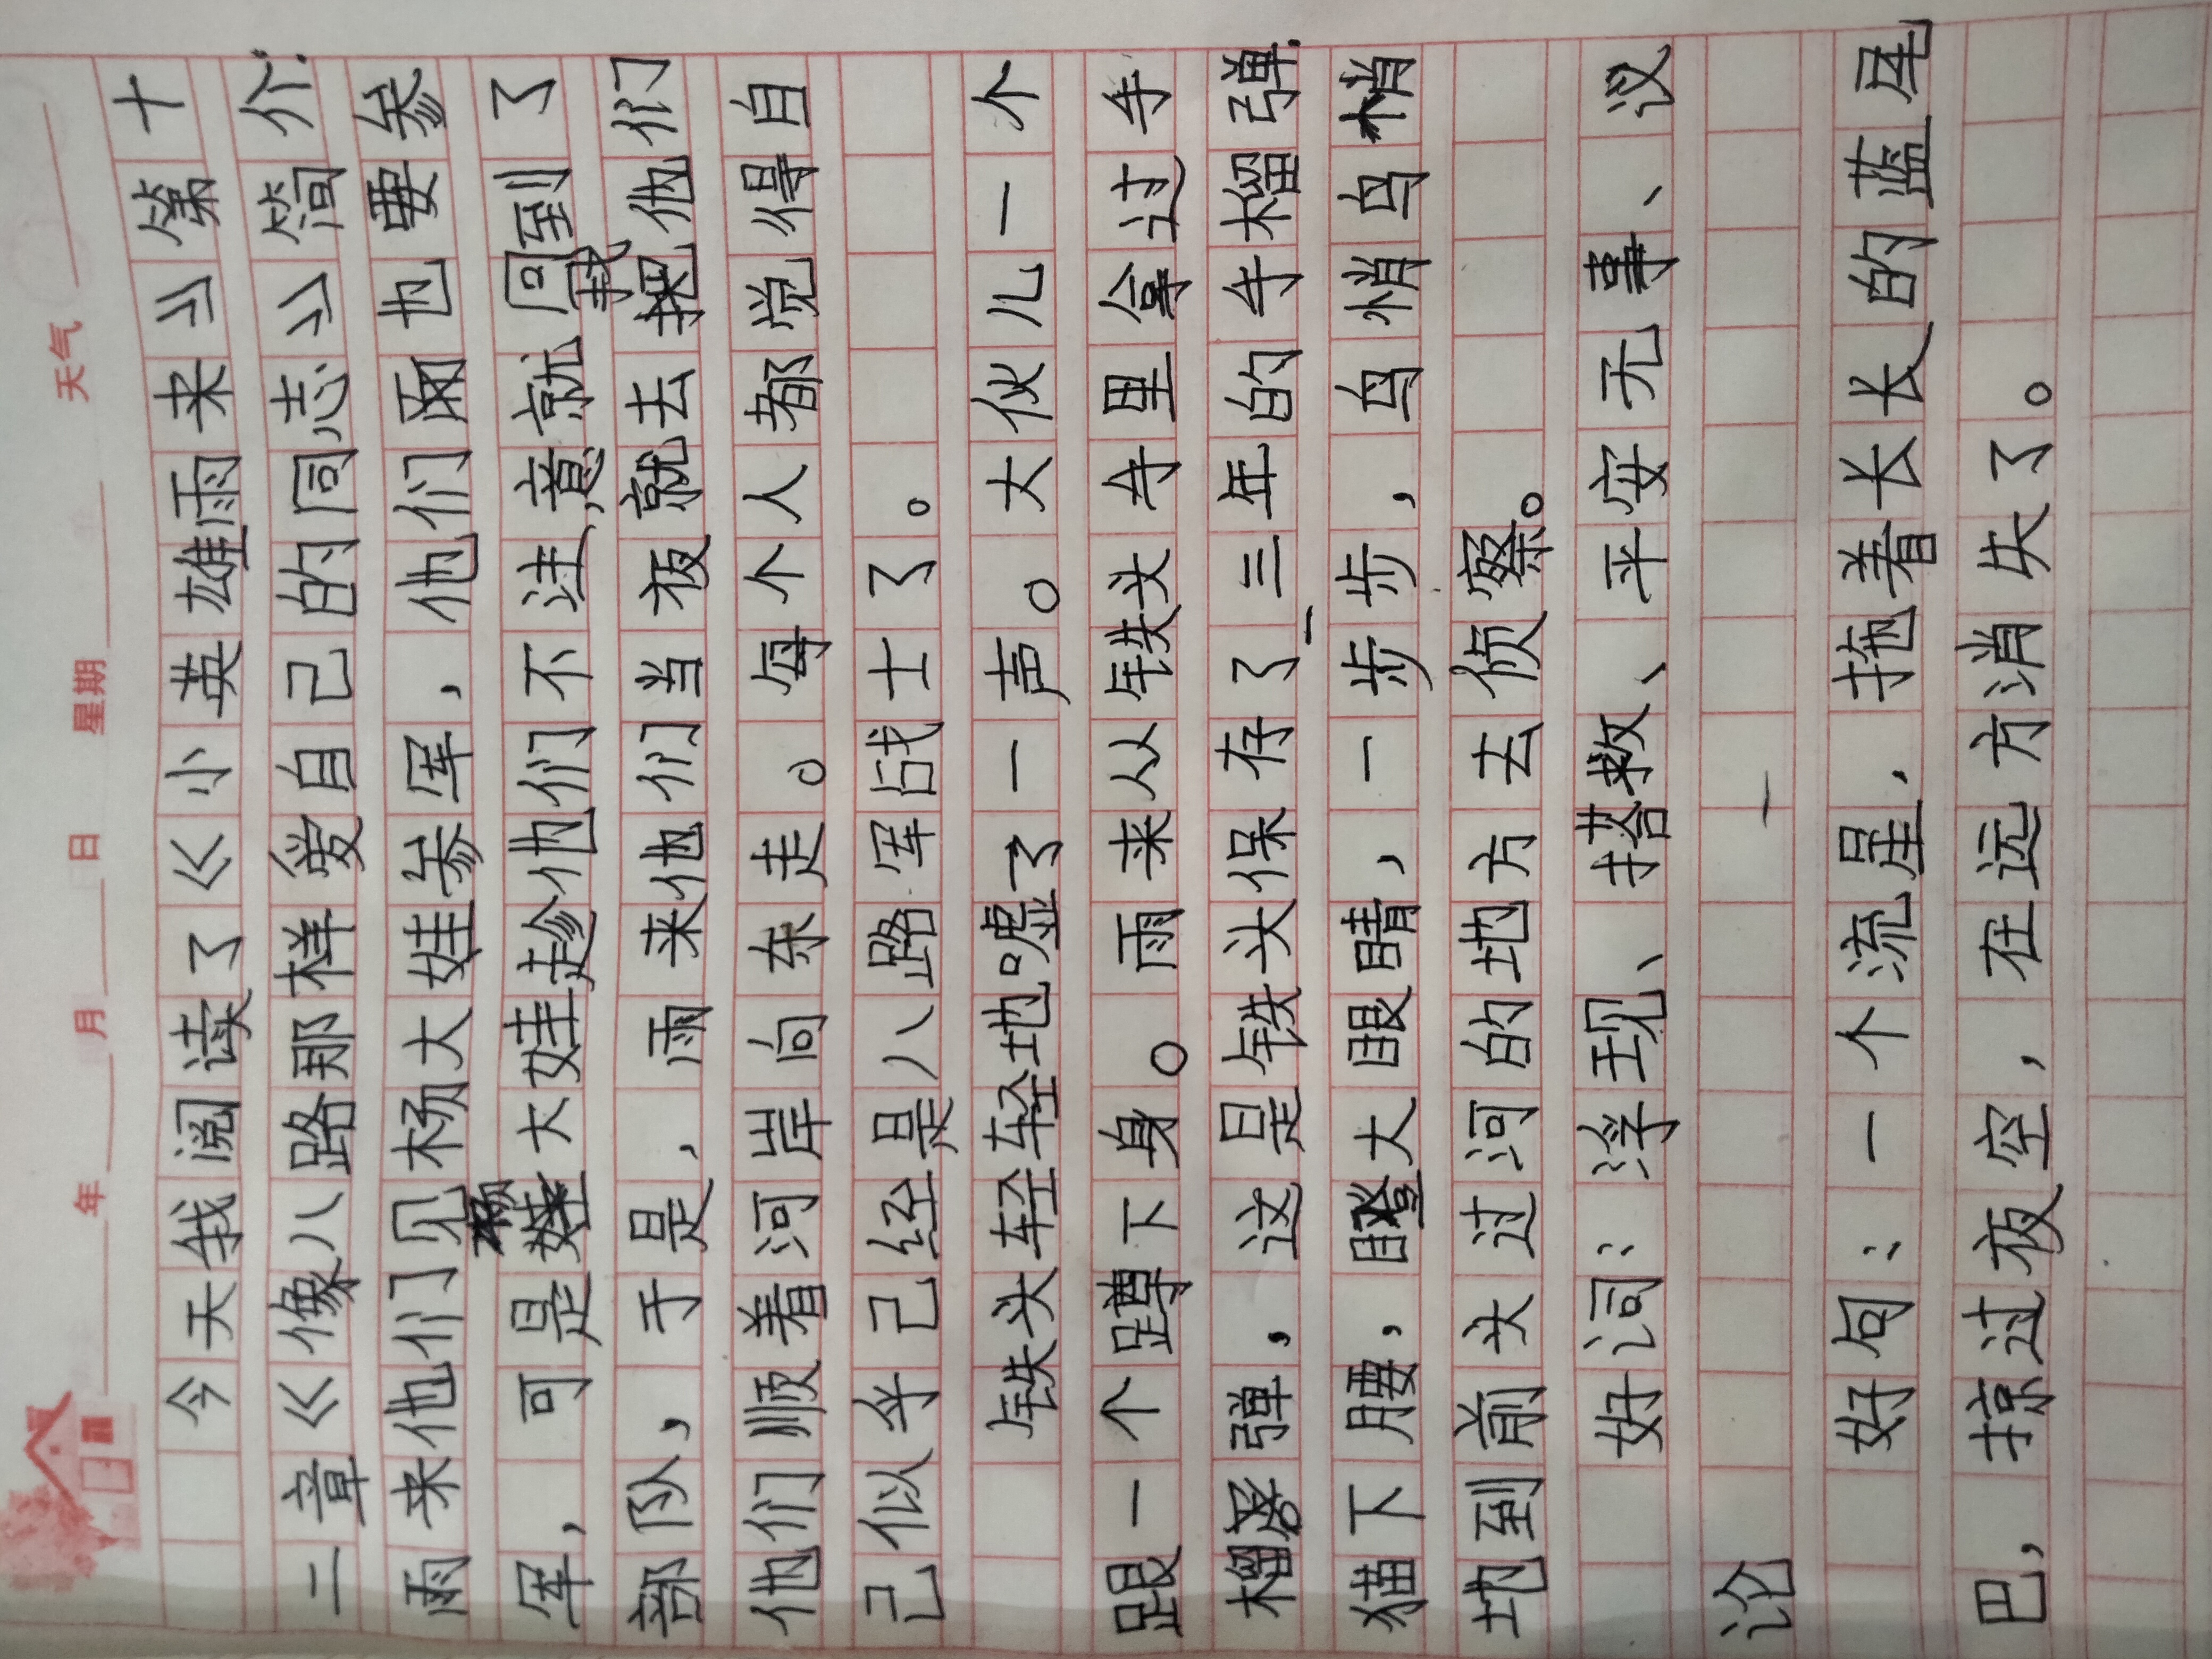 年 月 日 星期 天气
今天我阅读了《小英雄雨来》第十
二章《像八路那样爱自己的同志》简介:
雨来他们见杨大娃参军，他们两也要参
军，可是杨大娃趁他们不注意就回到了
部队，于是，雨来他们当夜就去找他们
他们顺着河岸向东走。每个人都觉得自
己似乎己经是八路军战士了。
铁头轻轻地嘘了一声。大伙儿一个
跟一个蹲下身。雨来从铁头手里拿过手
榴弹，这是铁头保存了三年的手榴弹.
猫下腰，瞪大眼睛，一步步，鸟鸟悄悄
地到前头过河的地方去侦察。
好词：浮现、搭救、平安无事、议
论
好句：一个流星，拖着长长的蓝尾
巴，掠过夜空，在远方消失了。